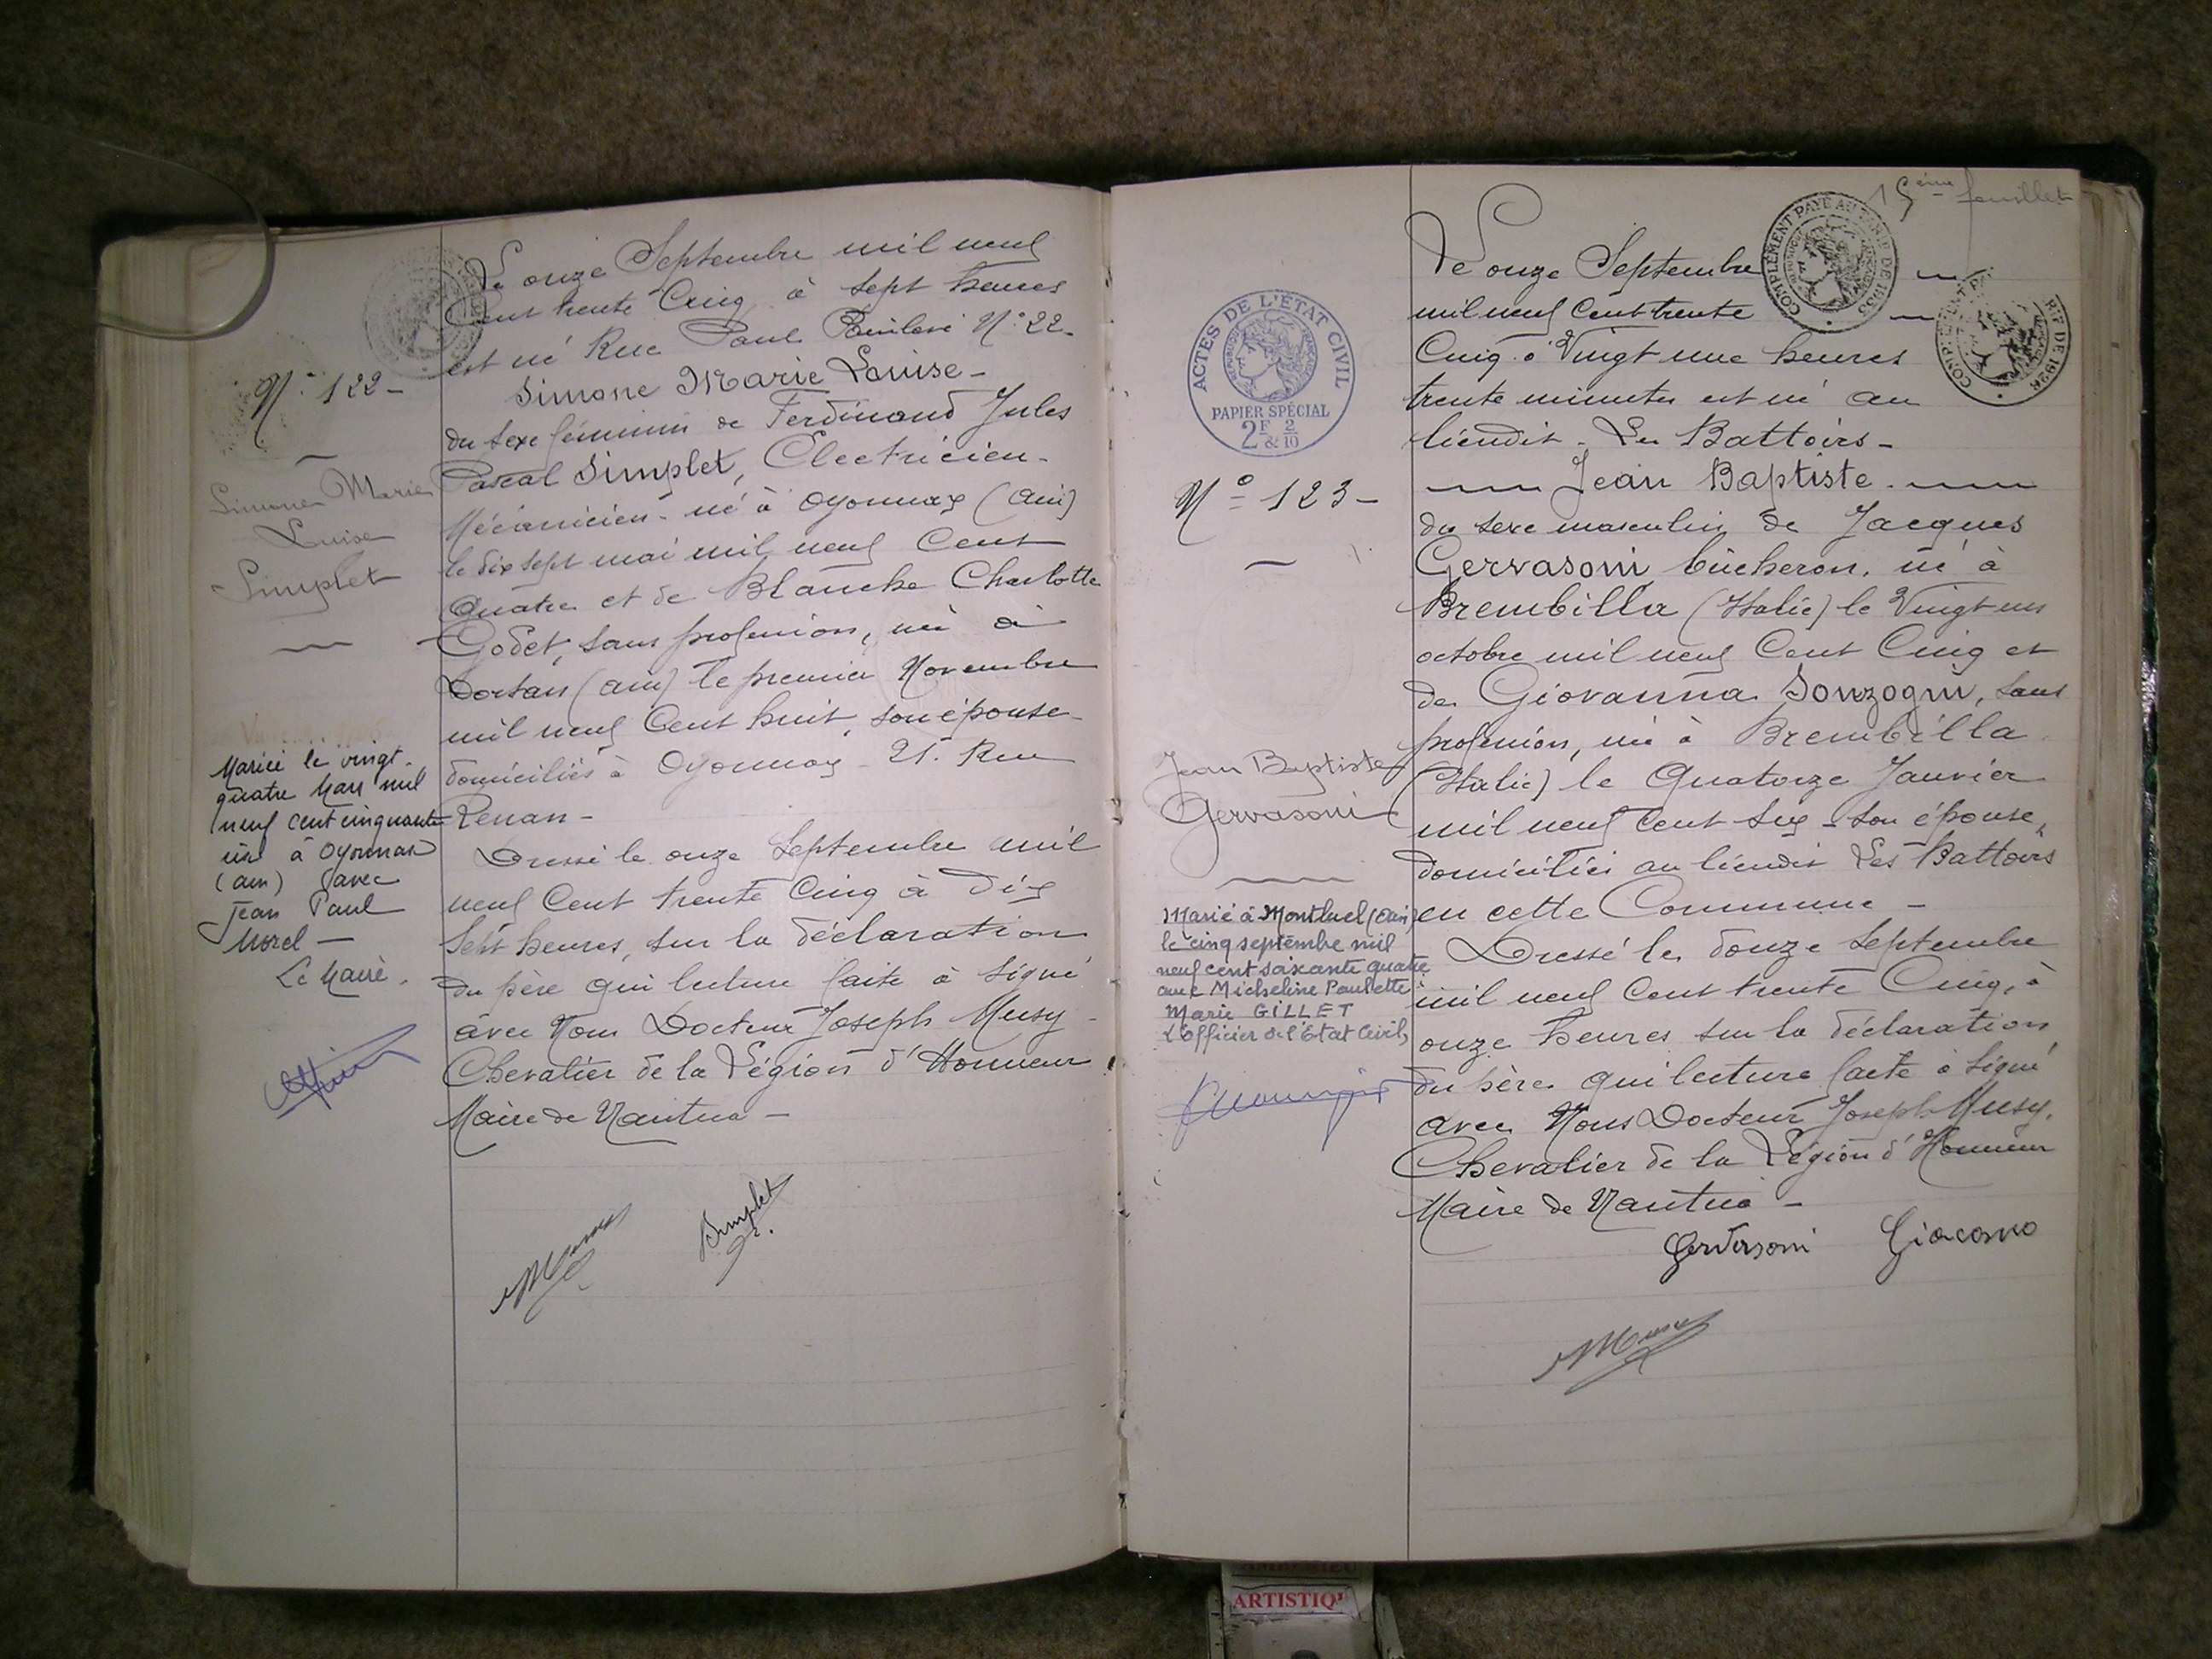 Le onze Septembre mil neuf
Cent trente Cinq à sept heures
est né Rue Paul Painlevé N° 22-
Simone Marie Louise-
du sexe féminin de Ferdinand Jules
Pascal Simplet, Electricien-
Mécanicien- né à Oyonnax (Ain)
le dix sept mai mil neuf Cent
Quatre et de Blanche Charlotte
Godet, sans profession, née à
Dortan (Ain) le premier Novembre
mil neuf Cent huit, son épouse-
domiciliés à Oyonnax - 21. Rue
Renan-
Dressé le onze Septembre mil
neuf Cent trente Cinq à Dix
Sept heures, sur la déclaration
du père qui lecture faite à signé
avec Nous Docteur Joseph Musy-
Chevalier de la Légion d'Honneur
Maire de Nantua-
Simplet
N° 122-
Simone Marie
Louise
Simplet
Mariée le vingt-
quatre Mars mil
neuf cent cinquante
un à Oyonnax
(Ain) avec
Jean Paul
Morel-
Le Maire.
15ème feuillet
COMPLÉMENT PAYÉ AU TARIF DE 1935
TARIF DE 1926
ACTES DE L'ÉTAT CIVIL
PAPIER SPÉCIAL
2F & 2/10
N° 123-
Jean Baptiste
Gervasoni
Marié à Montluel (Ain)
le cinq septembre mil
neuf cent soixante quatre
avec Micheline Paulette
Marie GILLET
L'Officier de l'Etat Civil,
Le onze Septembre
mil neuf Cent trente
Cinq à Vingt une heures
trente minutes est né au
lieudit - Les Battoirs-
Jean Baptiste.
du sexe masculin de Jacques
Gervasoni bûcheron, né à
Brembilla (Italie) le Vingt un
octobre mil neuf Cent Cinq et
de Giovanna Sonzogni, sans
profession, née à Brembilla
(Italie) le Quatorze Janvier
mil neuf Cent Six - son épouse,
domiciliés au lieudit Les Battoirs
en cette Commune-
Dressé le douze Septembre
mil neuf Cent trente Cinq, à
onze heures sur la déclaration
du père qui lecture faite à signé
avec Nous Docteur Joseph Musy,
Chevalier de la Légion d'Honneur
Maire de Nantua-
Gervasoni Giacomo
ARTISTIQ